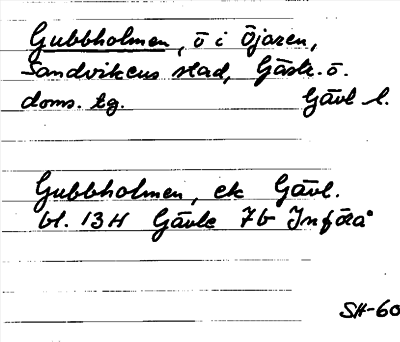 Gubbholmen, ö i Öjaren,
Sandvikens stad, Gästr. ö.
doms. tg. Gävl l.
Gubbholmen, ek Gävl.
bl. 13H Gävle 7b Införd
SH-60